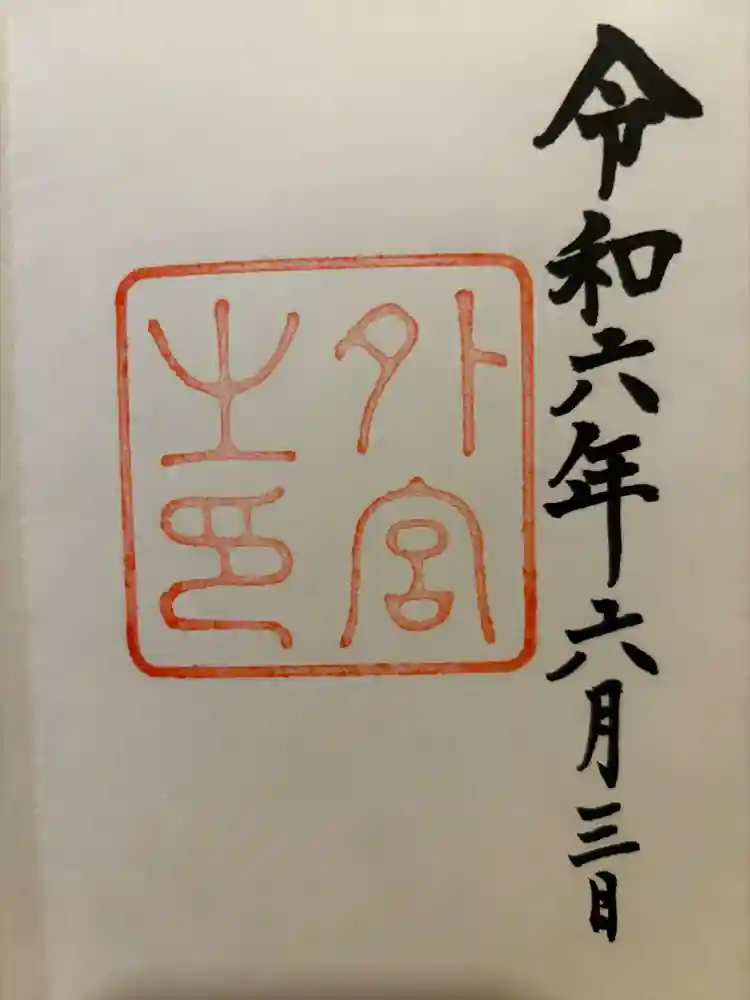 令和六年六月三日
外宮
之印